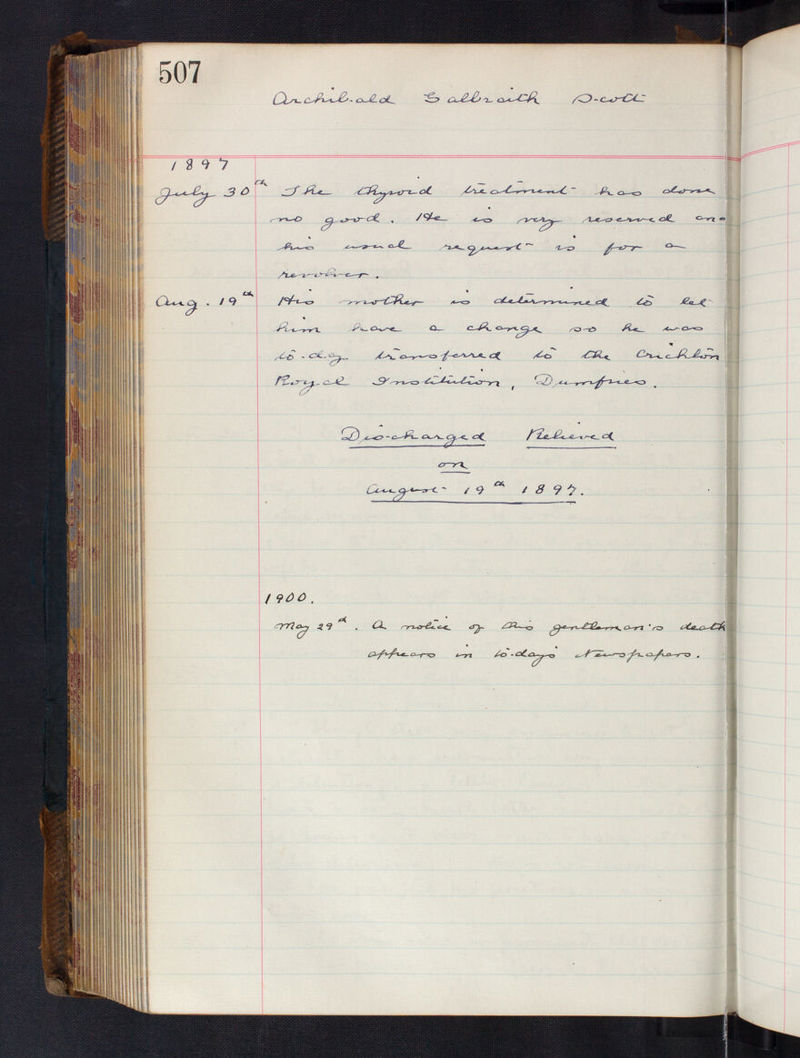 507
Archibald Galbraith Scott
1897
July 30th The thyroid treatment has done
no good. He is very reserved and
his usual request is for a
revolver.
Aug. 19th His mother is determined to let
him have a change so he was
to-day transferred to the Crichton
Royal Institution, Dumfries.
Discharged Relieved
on
August 19th 1897.
1900.
May 29th. A notice of this gentleman's death
appears in to-days Newspapers.